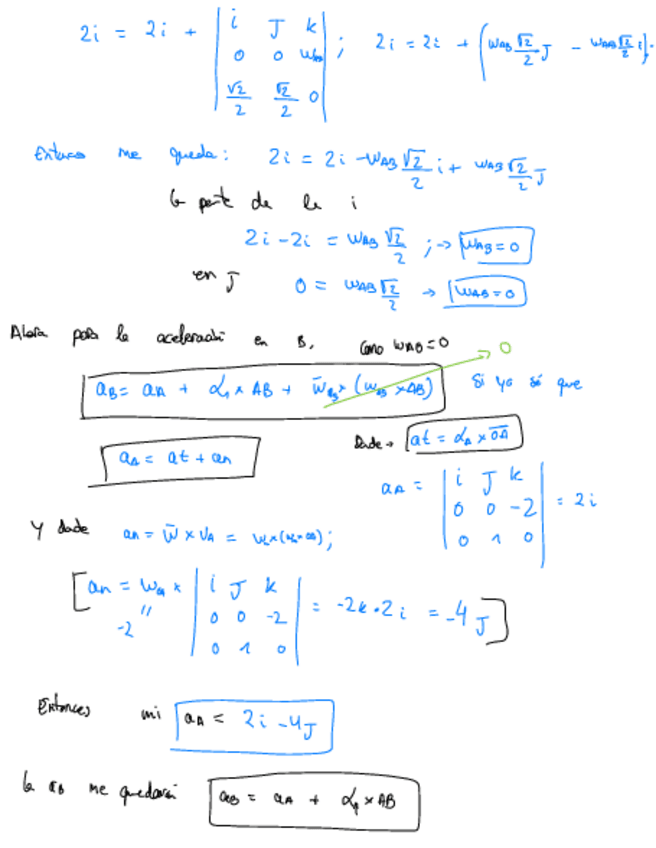 2i = 2i + | i J k | 0 0 W_AB | √2/2 √2/2 0 | ; 2i = 2i + (W_AB √2/2 J − W_AB √2/2 i);
Entonces me queda: 2i = 2i − W_AB √2/2 i + W_AB √2/2 J
la parte de la i
2i − 2i = W_AB √2/2 ; → W_AB = 0
en J 0 = W_AB √2/2 → W_AB = 0
Ahora para la aceleración en B, como W_AB = 0
a_B = a_A + α_1 × AB + W̄_AB × (W_AB × AB) → 0 Si ya sé que
a_A = at + an Donde → at = α_A × O̅A̅
a_A = | i J k | 0 0 -2 | 0 1 0 | = 2i
Y donde an = W̄ × V_A =
[an = W_OA × | i J k | 0 0 -2 | 0 1 0 | = -2k · 2i = -4J]
" -2
Entonces mi a_A = 2i − 4J
la a_B me quedaría a_B = a_A + α_1 × AB